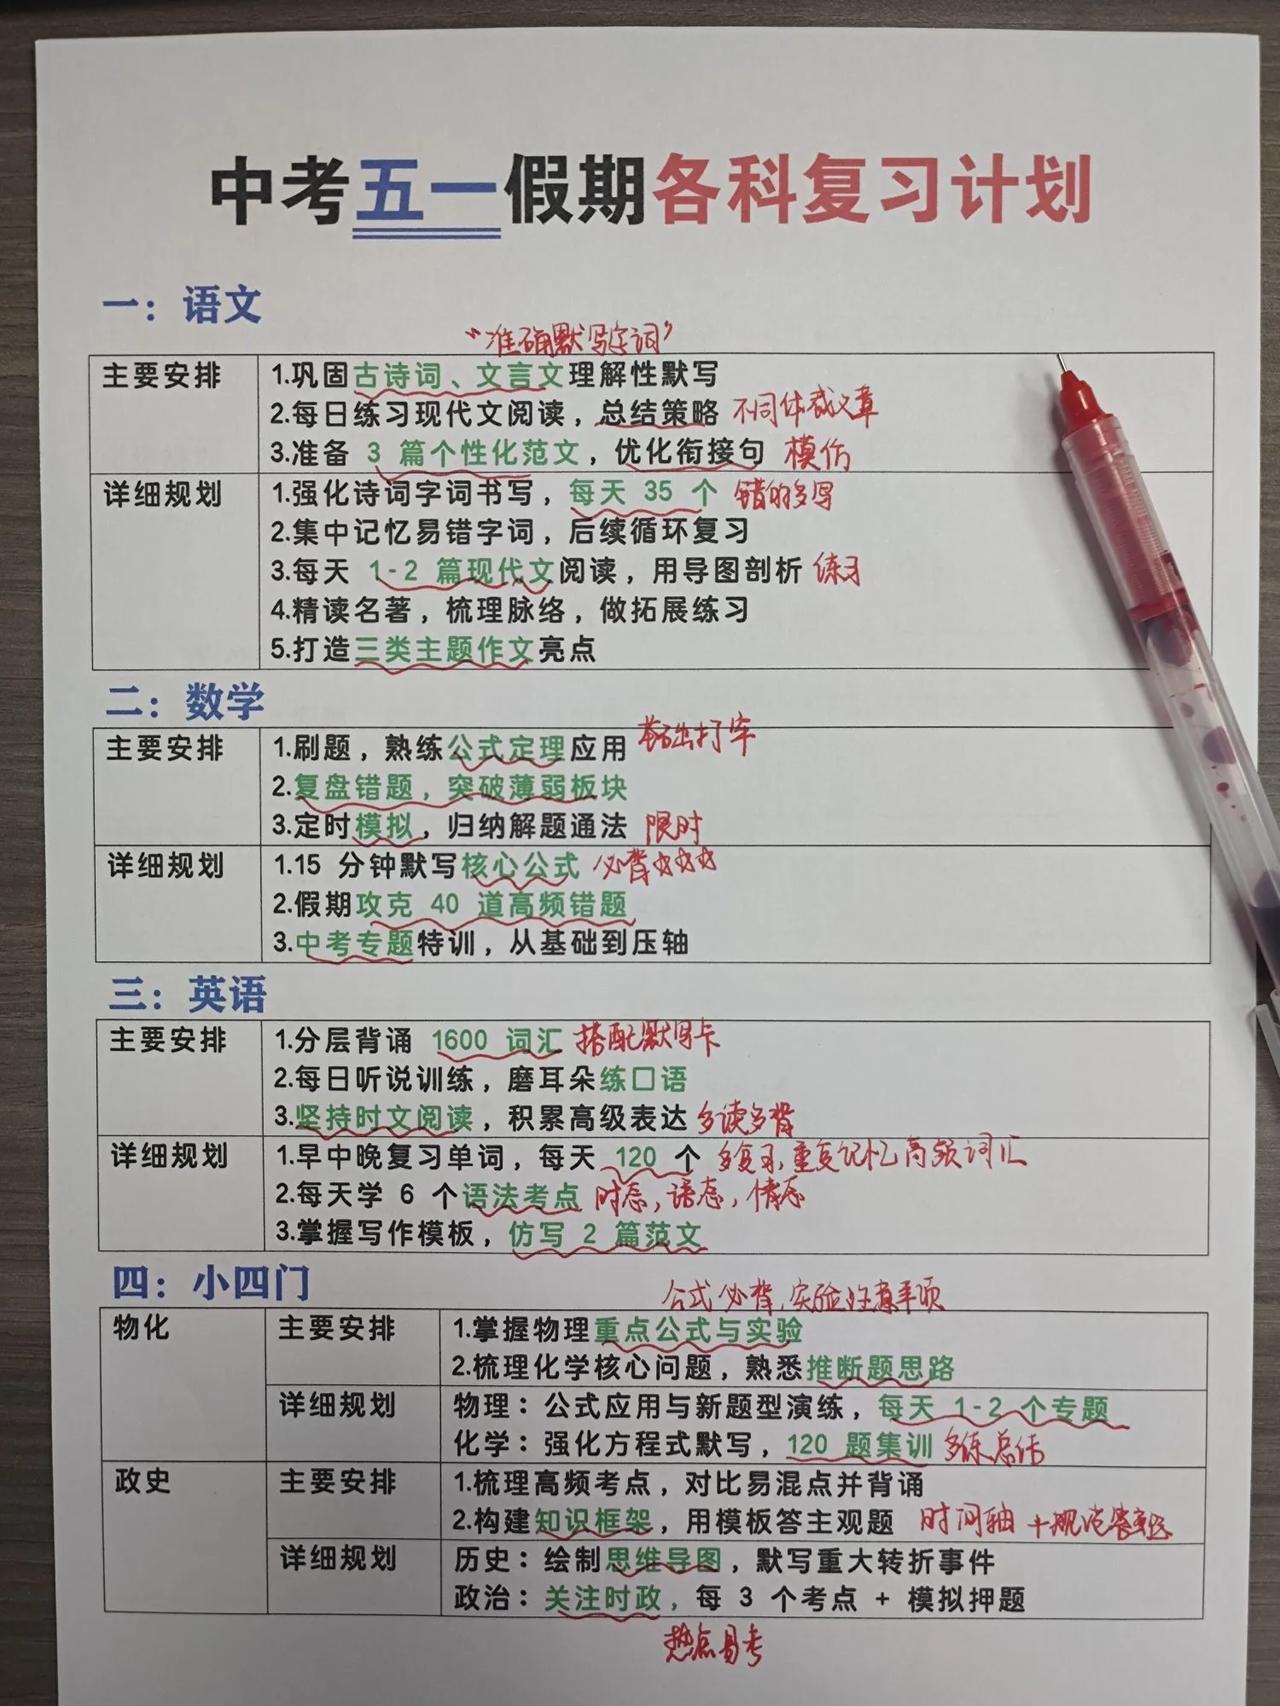 中考五一假期各科复习计划
一：语文
“准确默写字词”
主要安排
1.巩固古诗词、文言文理解性默写
2.每日练习现代文阅读，总结策略 不同体裁文章
3.准备 3 篇个性化范文，优化衔接句 模仿
详细规划
1.强化诗词字词书写，每天 35 个 错的多写
2.集中记忆易错字词，后续循环复习
3.每天 1-2 篇现代文阅读，用导图剖析 练习
4.精读名著，梳理脉络，做拓展练习
5.打造三类主题作文亮点
二：数学
主要安排
1.刷题，熟练公式定理应用 基础打牢
2.复盘错题，突破薄弱板块
3.定时模拟，归纳解题通法 限时
详细规划
1.15 分钟默写核心公式 必背☆☆☆
2.假期攻克 40 道高频错题
3.中考专题特训，从基础到压轴
三：英语
主要安排
1.分层背诵 1600 词汇 搭配默写卡
2.每日听说训练，磨耳朵练口语
3.坚持时文阅读，积累高级表达 多读多背
详细规划
1.早中晚复习单词，每天 120 个 多复习，重复记忆高频词汇
2.每天学 6 个语法考点 时态，语态，情态
3.掌握写作模板，仿写 2 篇范文
四：小四门
公式必背，实验注意事项
物化
主要安排
1.掌握物理重点公式与实验
2.梳理化学核心问题，熟悉推断题思路
详细规划
物理：公式应用与新题型演练，每天 1-2 个专题
化学：强化方程式默写，120 题集训 多练总结
政史
主要安排
1.梳理高频考点，对比易混点并背诵
2.构建知识框架，用模板答主观题 时间轴 +规范答案
详细规划
历史：绘制思维导图，默写重大转折事件
政治：关注时政，每 3 个考点 + 模拟押题
热点易考